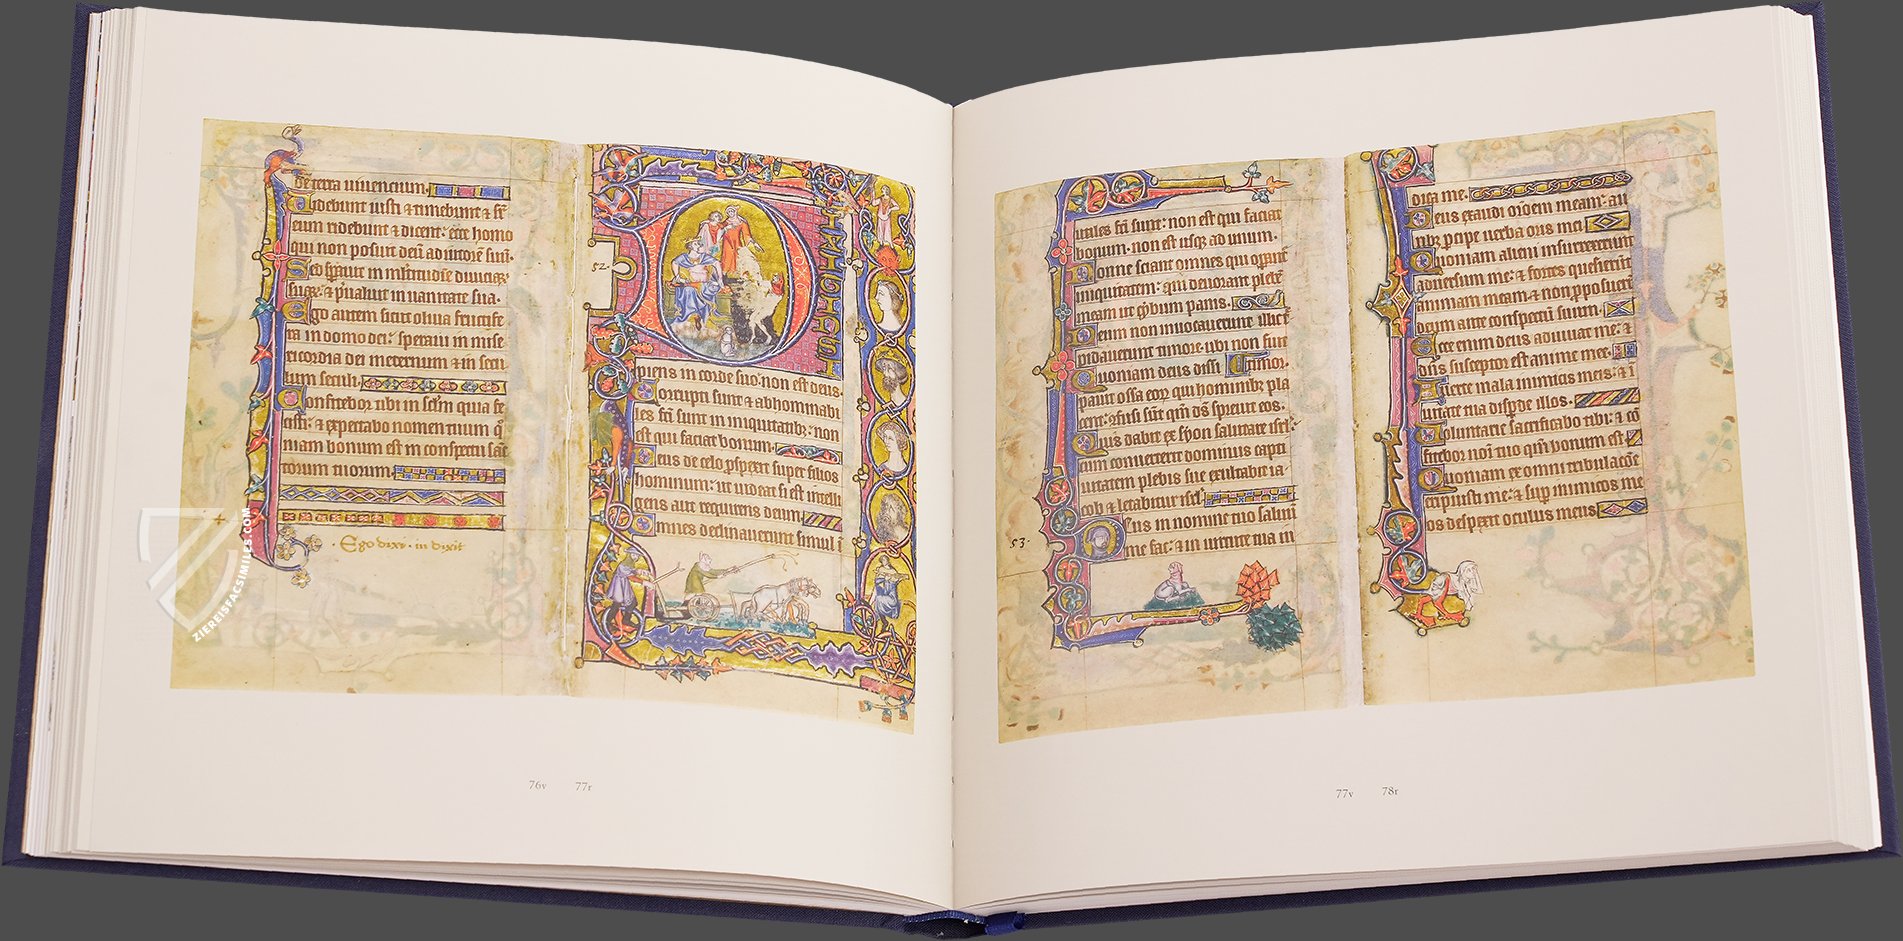 de terra uiuencium.
Uidebunt iusti & timebunt & sr̄
eum ridebunt & dicent: ecce homo
qui non posuit deū adiutorē suū.
Sed spauit in mltitudīe diuiciaƺ
suaƺ: & p̄ualuit in uanitate sua.
Ego autem sicut oliua fructife
ra in domo dei: speraui in mise
ricordia dei meternum & in secu
lum seculi.
Confitebor tibi in sc̄lm quia fe
cisti: & expectabo nomen tuum q̄
niam bonum est in conspectu sanc
torum tuorum.
· Ego dixi · in dixit
52·
DIXIT INSIPIENS
ipiens in corde suo: non est deus.
Corrupti sunt & abhominabi
les sc̄i sunt in iniquitatibƺ: non
est qui faciat bonum.
Deus de celo ꝓspexit super filios
hominum: ut uideat si est intelli
gens aut requirens deum.
Omnes declinauerunt simul i
utiles sc̄i sunt: non est qui faciat
bonum. non est usqƺ ad unum.
Nonne sciant omnes qui opant̄
iniquitatem: qui deuorant plebē
meam ut cybum panis.
Deum non inuocauerunt illic t
pidauerunt timore. ubi non fuit
Quoniam deus dissi timor.
pauit ossa eoƺ qui hominibƺ pla
cent: ɔfusi sūt qm̄ ds̄ spreuit eos.
Quis dabit ex syon salutare isrl̄
cum conuerterit dominus capti
uitatem plebis sue exultabit ia
cob & letabitur isrl̄.
53·
Deus in nomine tuo saluū
me fac: & in uirtute tua iu
dica me.
Deus exaudi orōem meam: au
ribƺ ꝑcipe uerba oris mei.
Quoniam alieni insurrexerunt
aduersum me: & fortes quesierūt
animam meam: & non ꝓposuerūt
deum ante conspectū suum.
Ecce enim deus adiuuat me: &
dn̄s susceptor est anime mee.
Auerte mala inimicis meis: & ī
ueritate tua disꝑde illos.
Voluntarie sacrificabo tibi: & cō
fitebor noī tuo qm̄ bonum est.
Quoniam ex omni tribulacōe
eripuisti me: & suꝑ inimicos me
os despexit oculus meus.
76v 77r
77v 78r
ZIEREISFACSIMILES.COM